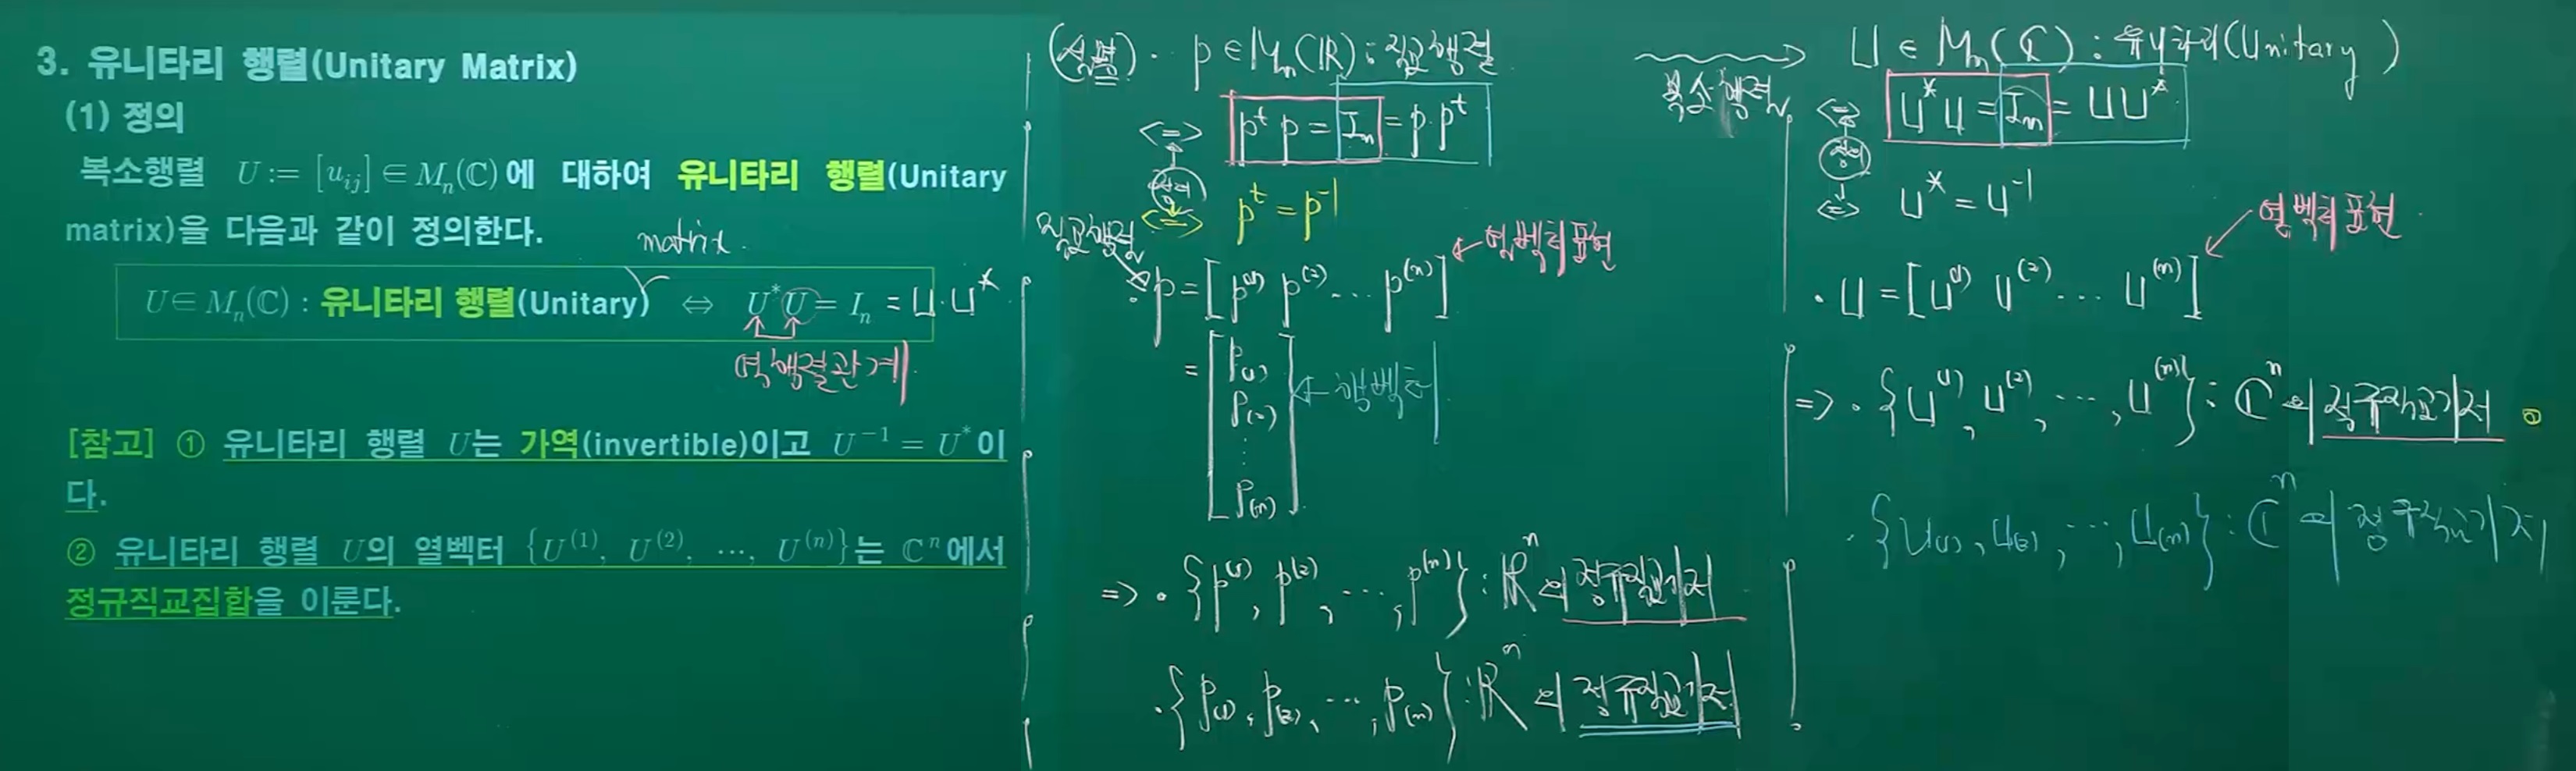 3. 유니타리 행렬(Unitary Matrix)
(1) 정의
복소행렬 U := [u_{ij}] ∈ M_n(ℂ)에 대하여 유니타리 행렬(Unitary
matrix)을 다음과 같이 정의한다.
matrix.
U ∈ M_n(ℂ) : 유니타리 행렬(Unitary) ⇔ U*U = I_n = U·U*
역행렬관계
[참고] ① 유니타리 행렬 U는 가역(invertible)이고 U^{-1} = U*이
다.
② 유니타리 행렬 U의 열벡터 {U^{(1)}, U^{(2)}, ⋯, U^{(n)}}는 ℂ^n에서
정규직교집합을 이룬다.
(설명) · P ∈ M_n(ℝ) : 직교행렬
<=> P^t P = I_n = P·P^t
정의
<=> P^t = P^{-1}
직교행렬
· P = [P^{(1)} P^{(2)} ... P^{(n)}] ← 열벡터표현
= [P_{(1)} P_{(2)} ⋮ P_{(n)}] ← 행벡터
=> · {P^{(1)}, P^{(2)}, ⋯, P^{(n)}} : ℝ^n의 정규직교기저
· {P_{(1)}, P_{(2)}, ⋯, P_{(n)}} : ℝ^n의 정규직교기저
복소행렬
U ∈ M_n(ℂ) : 유니타리(Unitary)
<=> U*U = I_n = UU*
정의
<=> U* = U^{-1}
열벡터표현
· U = [U^{(1)} U^{(2)} ... U^{(n)}]
=> · {U^{(1)}, U^{(2)}, ⋯, U^{(n)}} : ℂ^n의 정규직교기저
· {U_{(1)}, U_{(2)}, ⋯, U_{(n)}} : ℂ^n의 정규직교기저